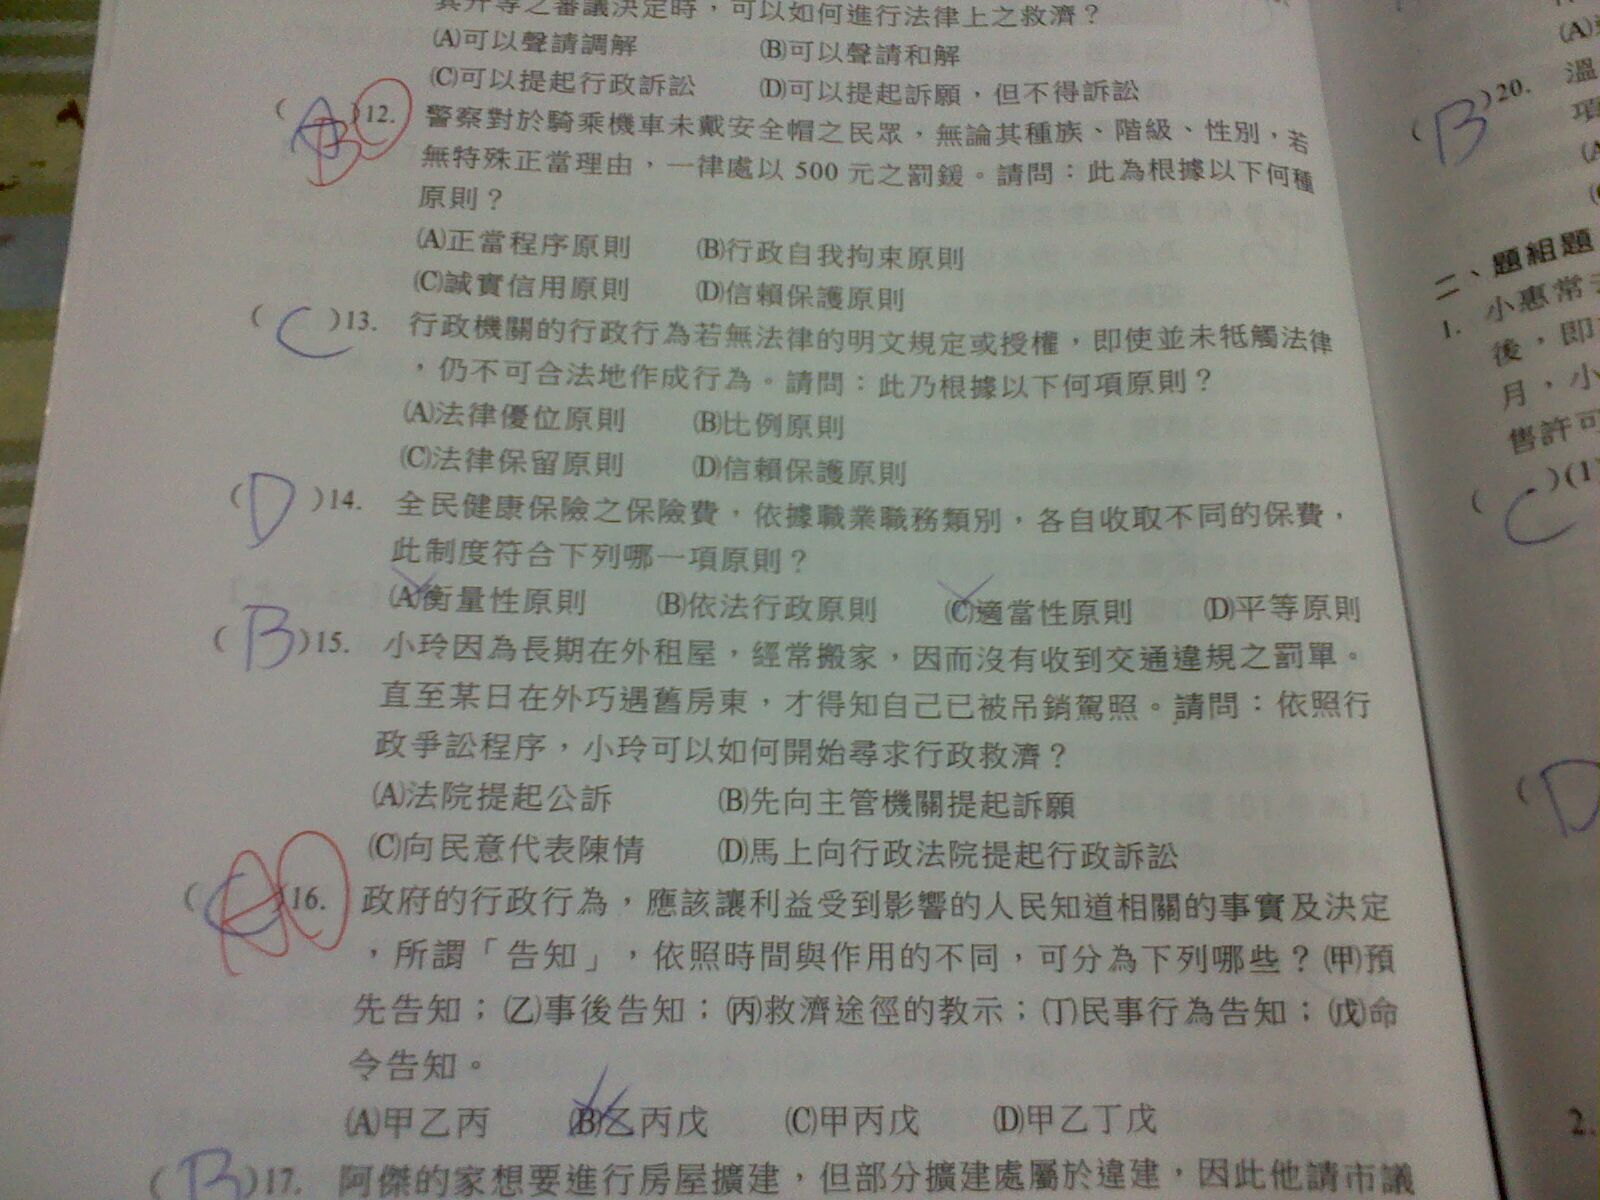 其升等之審議決定時，可以如何進行法律上之救濟？
(A)可以聲請調解 (B)可以聲請和解
(C)可以提起行政訴訟 (D)可以提起訴願，但不得訴訟
( A B )12. 警察對於騎乘機車未戴安全帽之民眾，無論其種族、階級、性別，若
無特殊正當理由，一律處以 500 元之罰鍰。請問：此為根據以下何種
原則？
(A)正當程序原則 (B)行政自我拘束原則
(C)誠實信用原則 (D)信賴保護原則
( C )13. 行政機關的行政行為若無法律的明文規定或授權，即使並未牴觸法律
，仍不可合法地作成行為。請問：此乃根據以下何項原則？
(A)法律優位原則 (B)比例原則
(C)法律保留原則 (D)信賴保護原則
( D )14. 全民健康保險之保險費，依據職業職務類別，各自收取不同的保費，
此制度符合下列哪一項原則？
(A)衡量性原則 (B)依法行政原則 (C)適當性原則 (D)平等原則
( B )15. 小玲因為長期在外租屋，經常搬家，因而沒有收到交通違規之罰單。
直至某日在外巧遇舊房東，才得知自己已被吊銷駕照。請問：依照行
政爭訟程序，小玲可以如何開始尋求行政救濟？
(A)法院提起公訴 (B)先向主管機關提起訴願
(C)向民意代表陳情 (D)馬上向行政法院提起行政訴訟
( C A )16. 政府的行政行為，應該讓利益受到影響的人民知道相關的事實及決定
，所謂「告知」，依照時間與作用的不同，可分為下列哪些？(甲)預
先告知；(乙)事後告知；(丙)救濟途徑的教示；(丁)民事行為告知；(戊)命
令告知。
(A)甲乙丙 (B)乙丙戊 (C)甲丙戊 (D)甲乙丁戊
( B )17. 阿傑的家想要進行房屋擴建，但部分擴建處屬於違建，因此他請市議
(A)
( B )20. 溫
項
(A
二、題組題
1. 小惠常
後，即
月，小
售許可
( C )(1
( D
2.